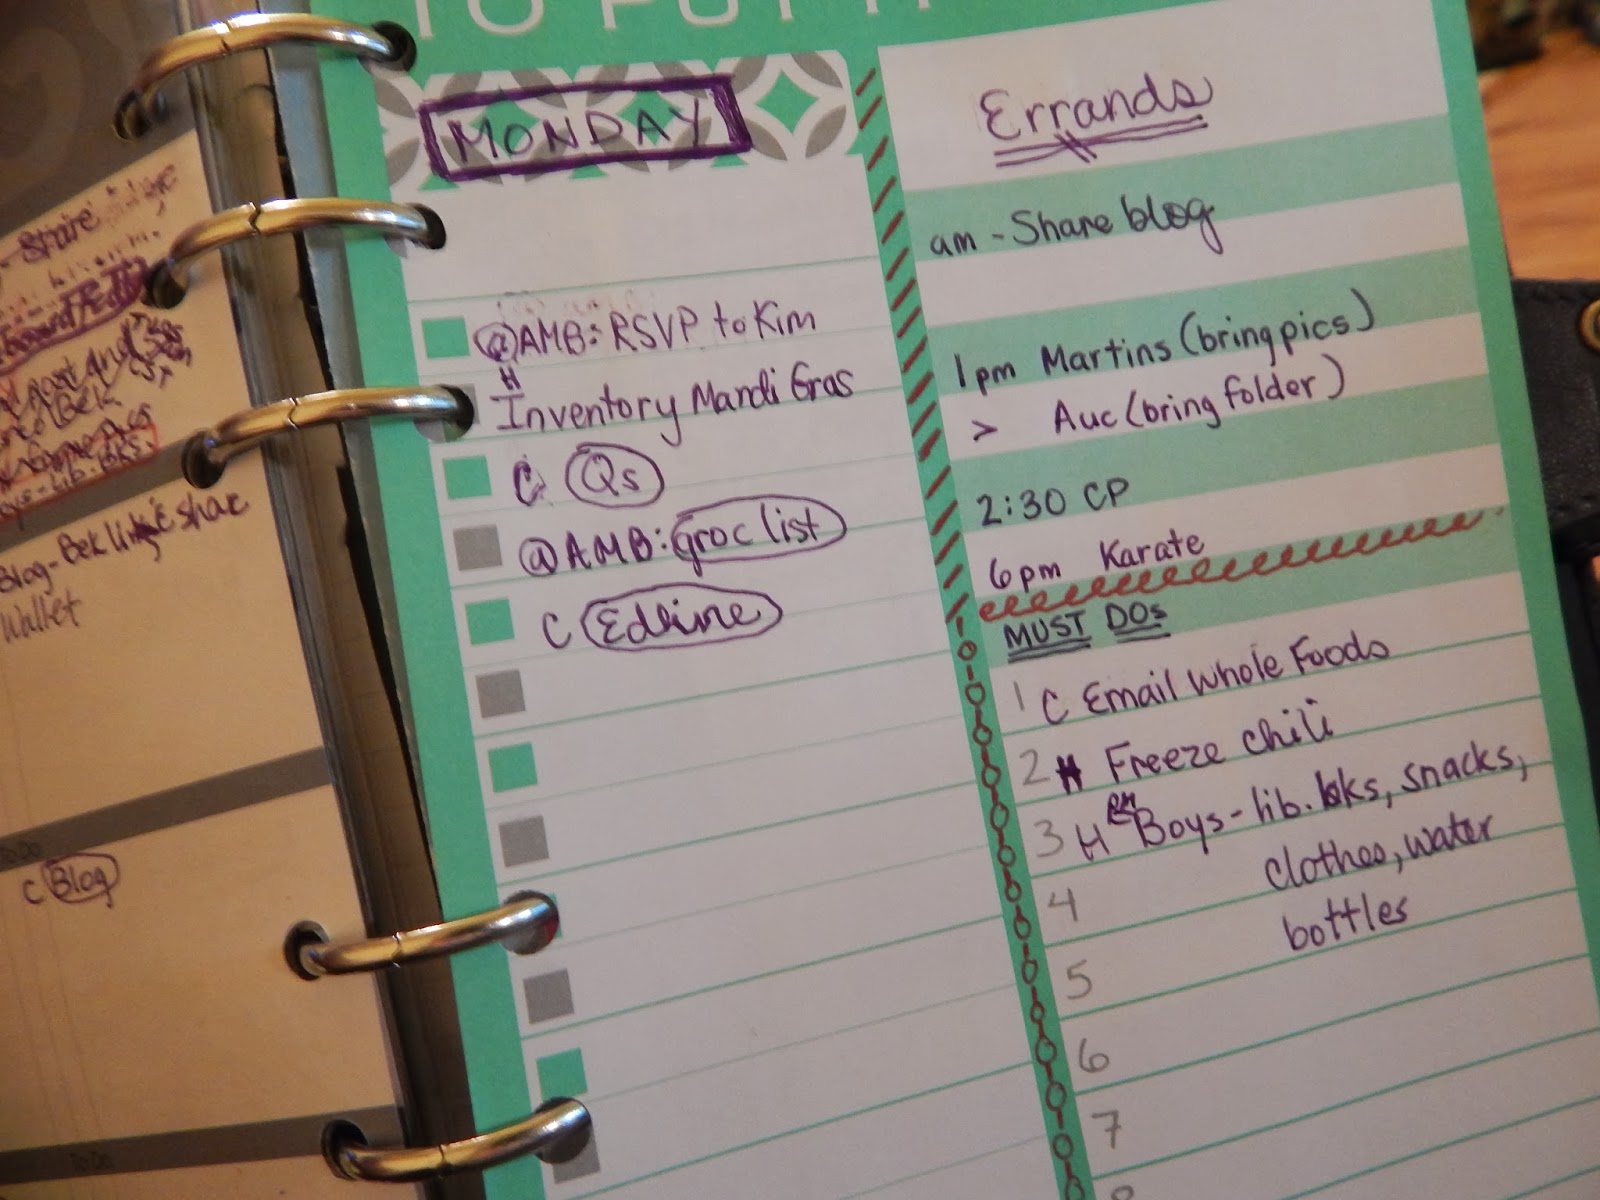 TO PUT IT
MONDAY
@AMB: RSVP to Kim
H
Inventory Mardi Gras
C Qs
@AMB: groc list
C Edline
Errands
am - Share blog
1pm Martins (bring pics)
> Auc (bring folder)
2:30 CP
6pm Karate
MUST DOs
1 C Email Whole Foods
2 H Freeze chili
3 H PM Boys - lib. bks, snacks,
clothes, water
4
bottles
5
6
7
8
- Share
Blog - Bek link & share
Wallet
C Blog
TO DO